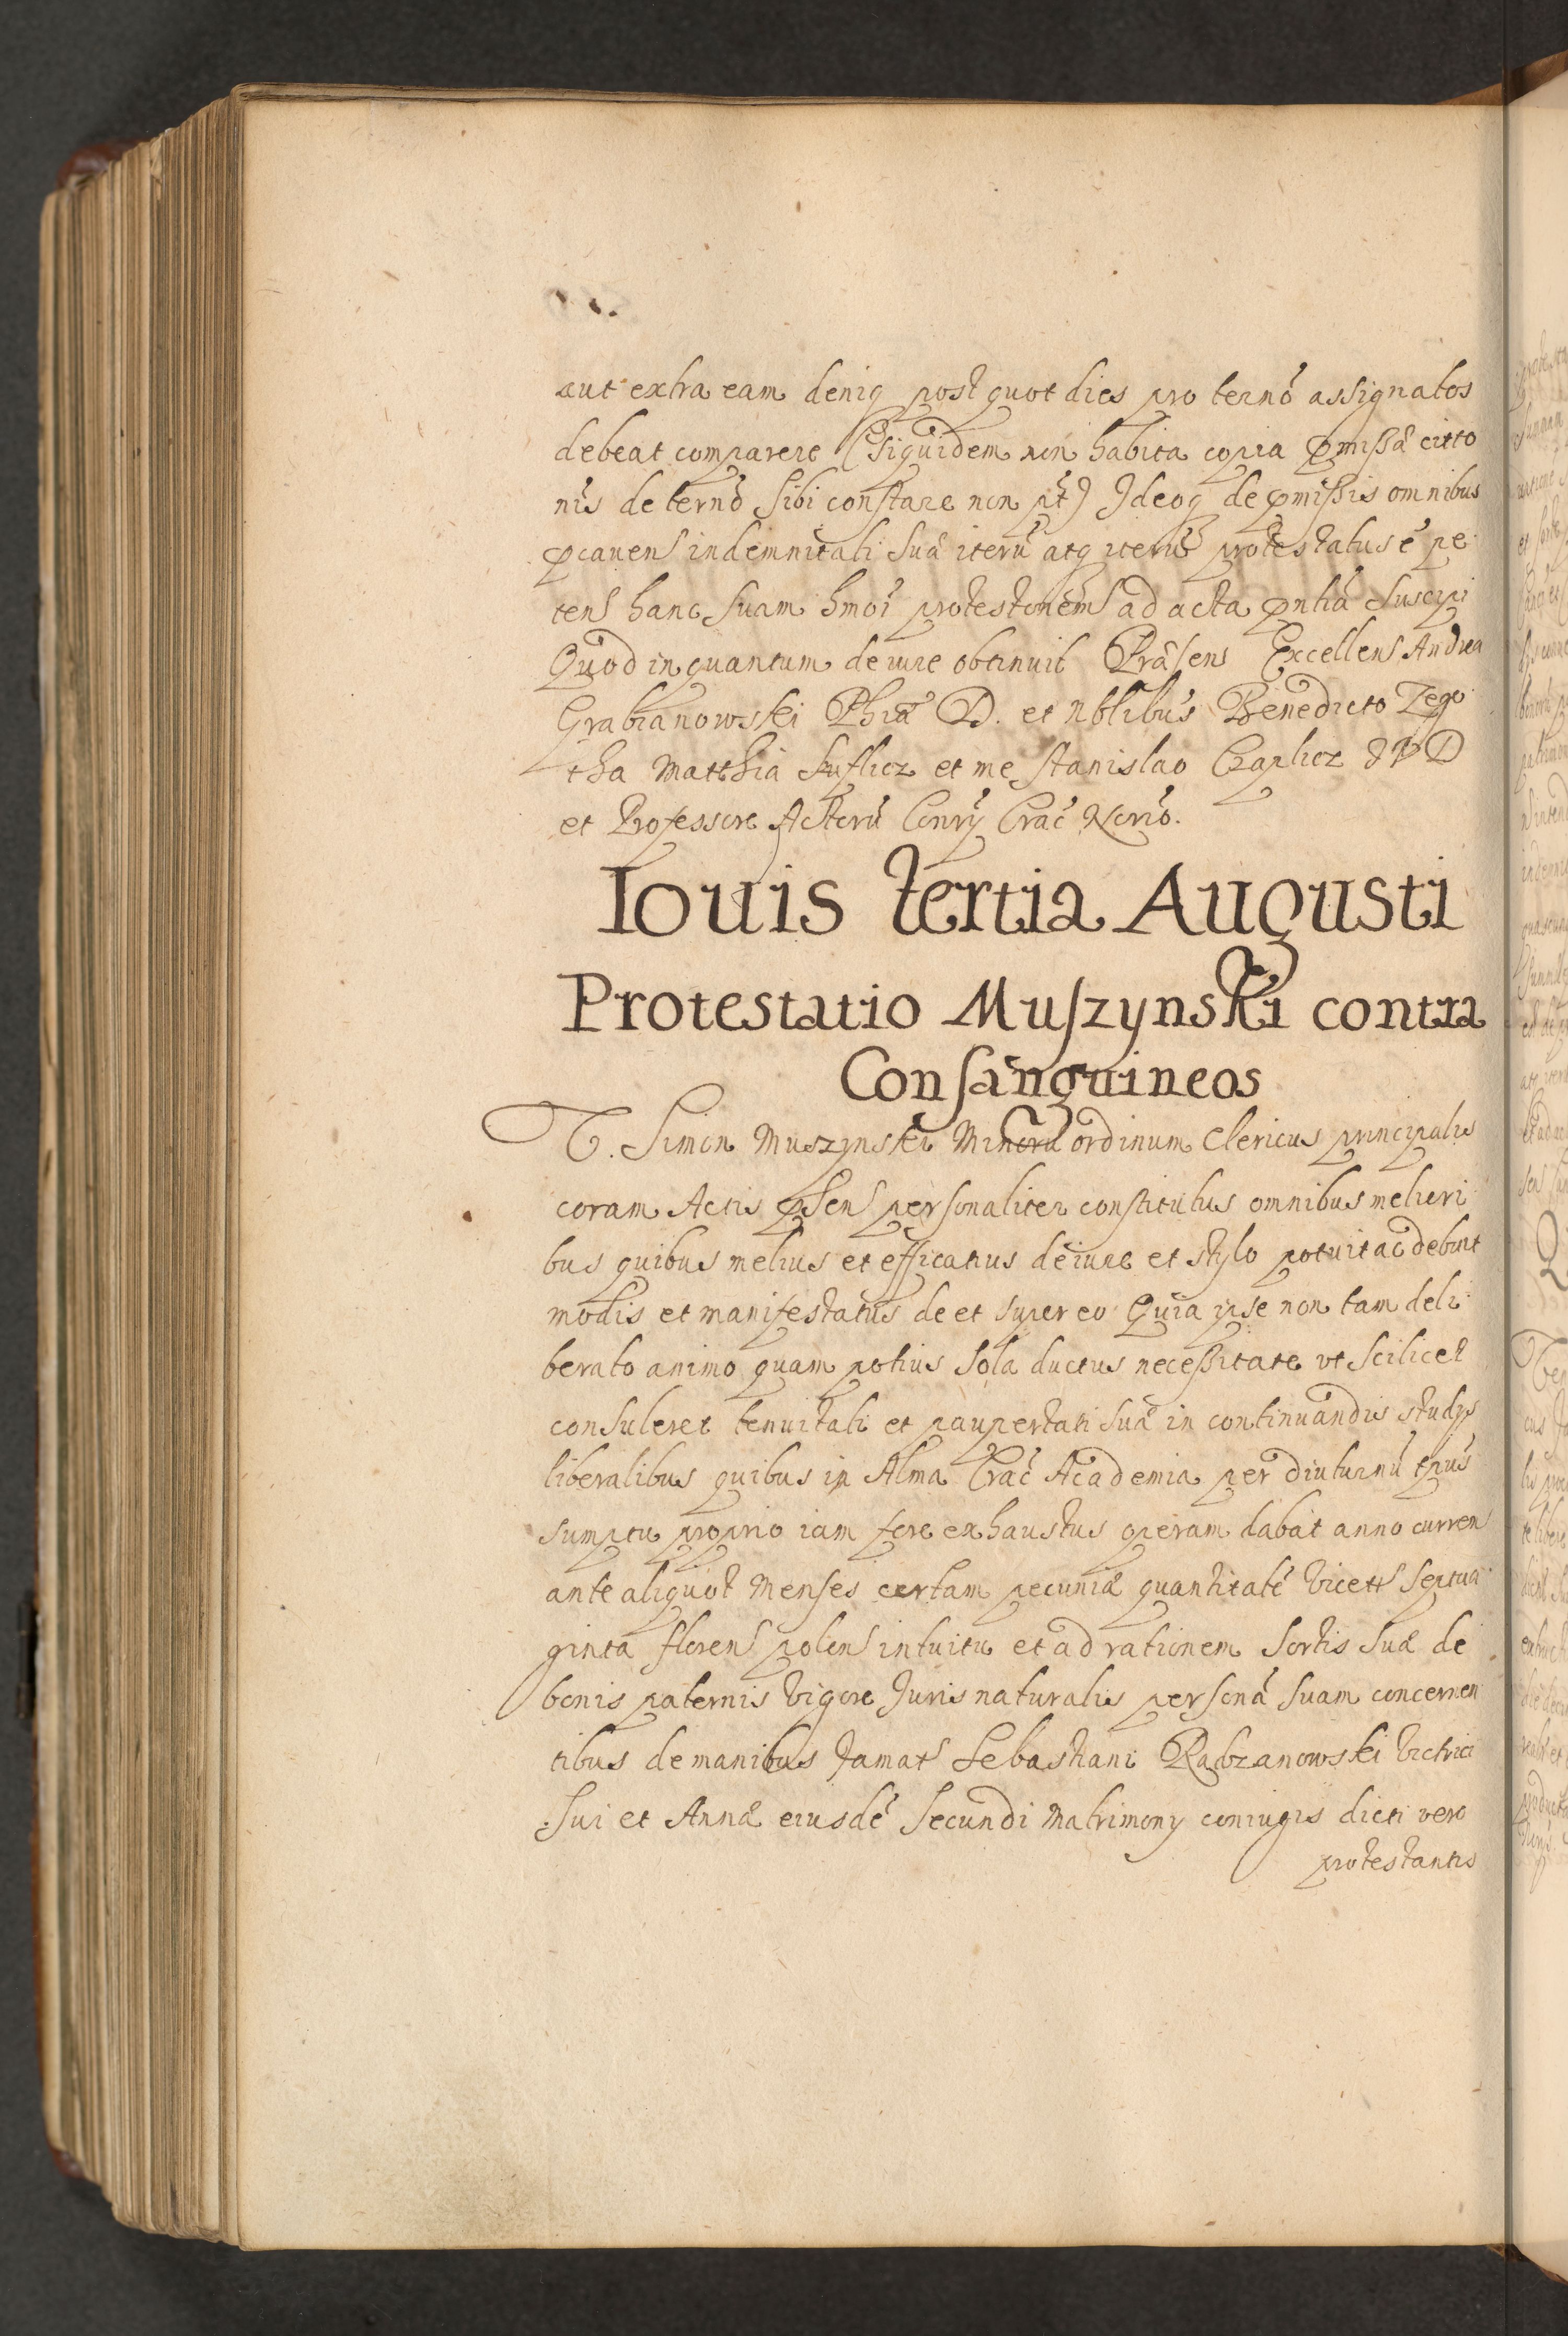 aut extra eam deniq post quot dies pro termõ assignatos
debeat comparere (siquidem non habita copia pmissæ citto
nis de termõ sibi constare non pt) Ideoq de pmissis omnibus
pcauens indemnitati suæ iterũ atq iterũ protestatus ẽ pe
tens hanc suam hmõi protestonem ad acta pntia suscipi
Quod in quantum de iure obtinuit Præsens Excellens Andrea
Grabianowski Phiæ D. et Nblibus Benedicto Zego
tha Matthia Suflicz et me Stanislao Czaplicz IVD
et Professore Actorũ Consrij Crac Norio.
Iouis tertia Augusti
Protestatio Muszynski contra
Consanguineos
V. Simon Muszynski Minorũ ordinum Clericus principalis
coram Actis psens personaliter constitutus omnibus meliori
bus quibus melius et efficatius de iure et stylo potuit ac debuit
modis et manifestatus de et super eo Quia ipse non tam deli
berato animo quam potius sola ductus necessitate vt scilicet
consuleret tenuitati et paupertati suæ in continuandis studys
liberalibus quibus in Alma Crac Academia per diuturnũ tpus
sumptu proprio iam fere exhaustus operam dabat anno curren
ante aliquot Menses certam pecuniæ quantitatẽ vicett Septua
ginta floren polen intuitu et ad rationem Sortis suæ de
bonis paternis vigore Iuris naturalis personã suam concernen
tibus de manibus Famat Sebastiani Radzanowski victrici
sui et Annæ eiusdẽ secundi Matrimony coniugis dicti vero
protestantis